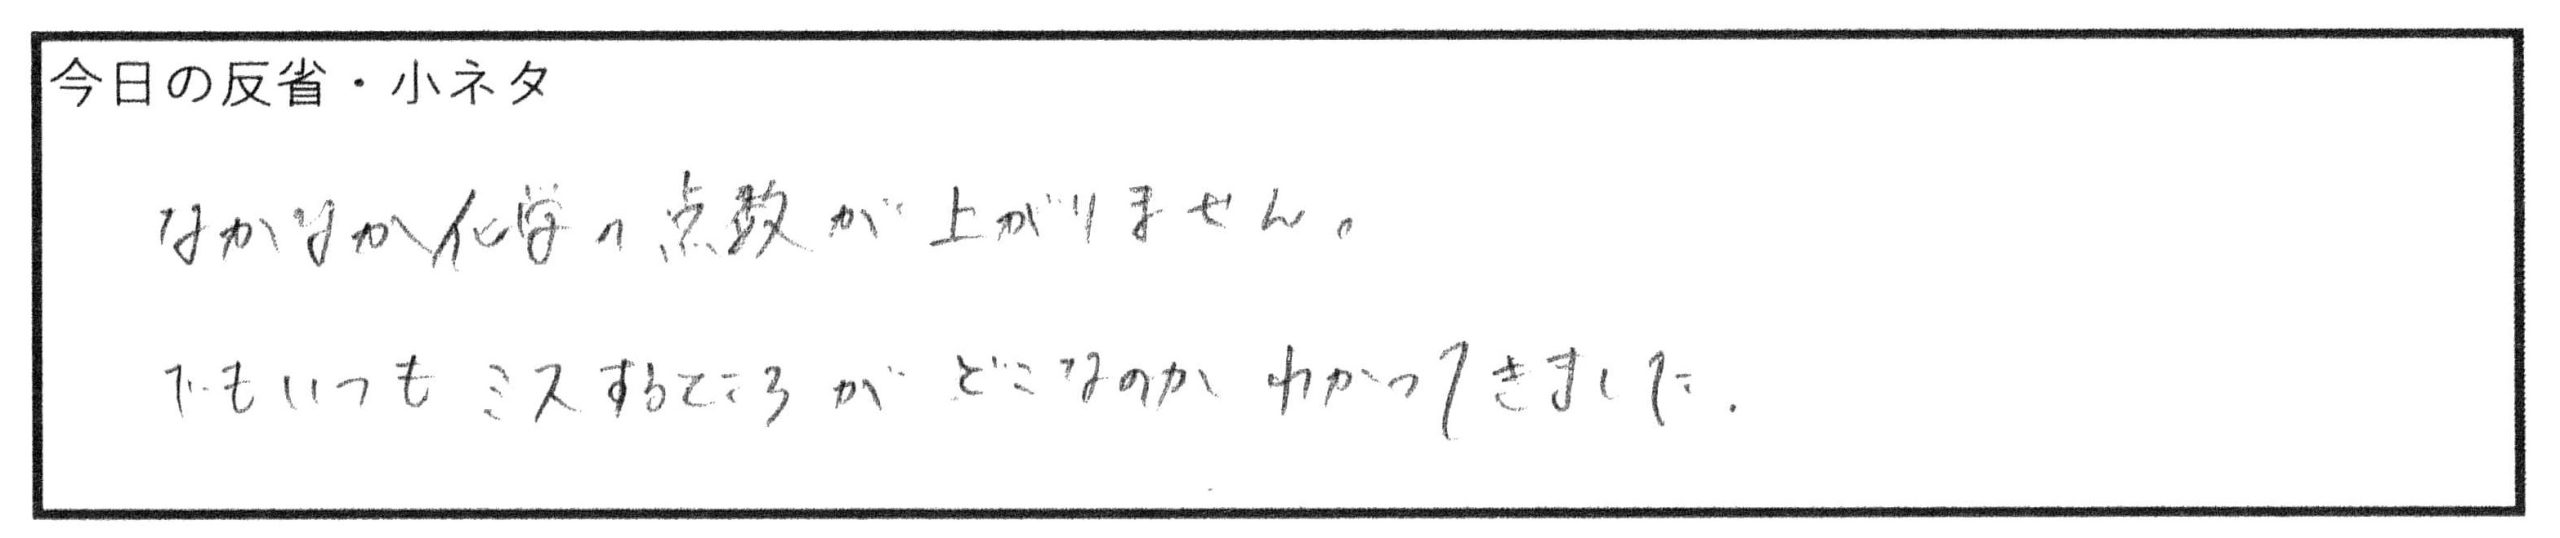 今日の反省・小ネタ
なかなか化学の点数が上がりません。
でもいつもミスするところがどこなのかわかってきました.